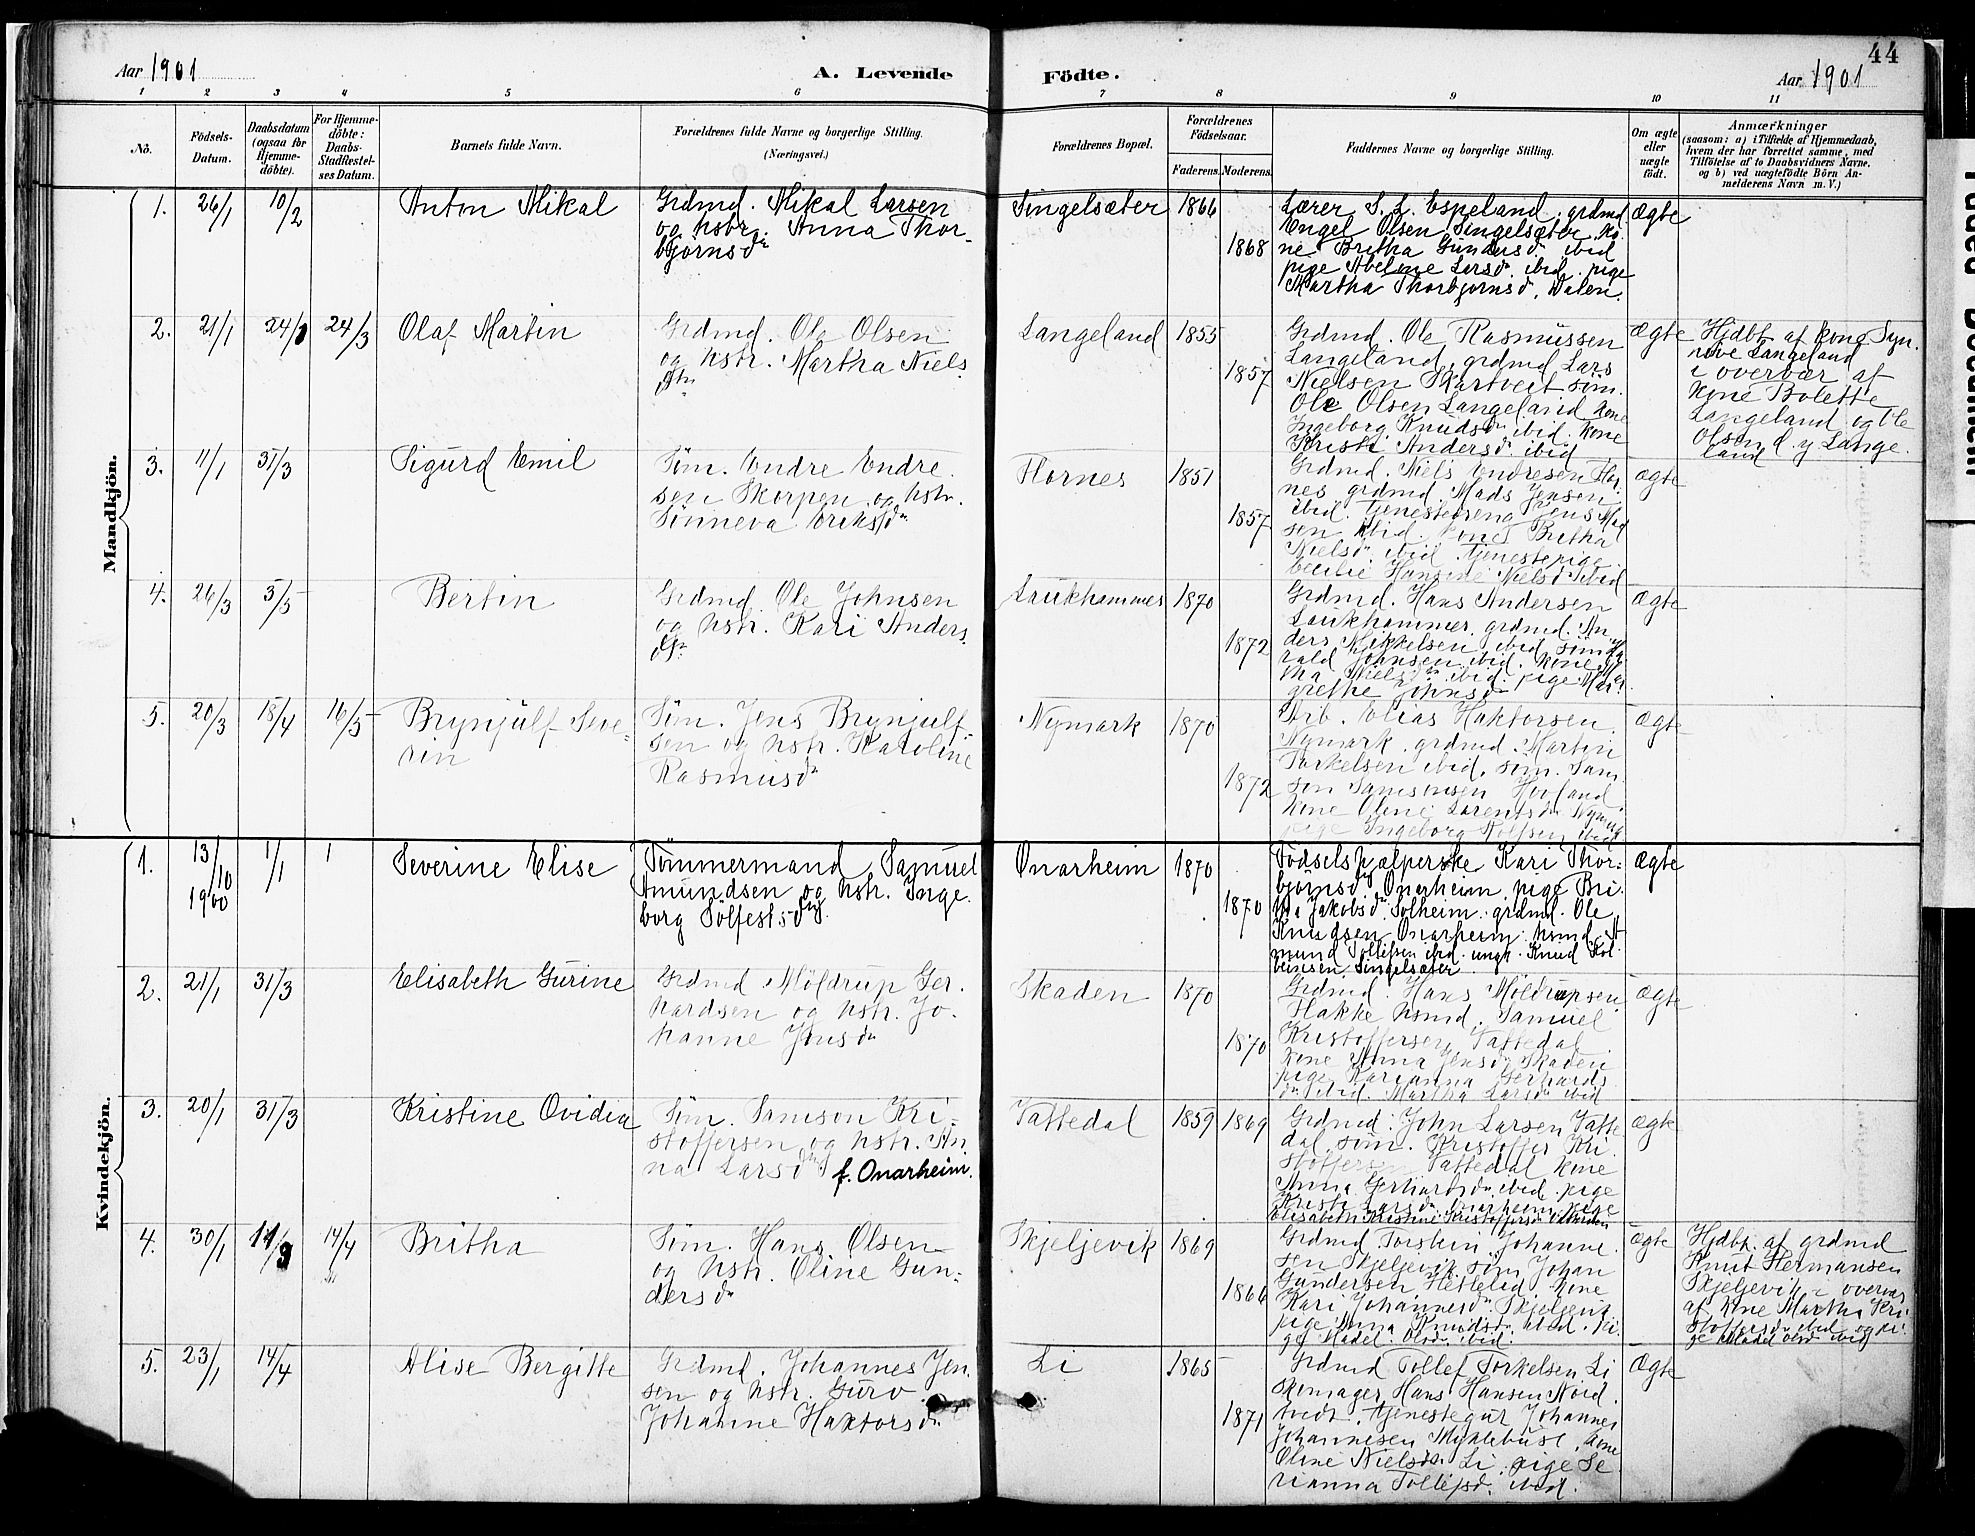 44
Aar 1901
A. Levende
Födte.
Aar 1901
1 2 3 4 5 6 7 8 9 10 11
Nö.
Födsels-Datum.
Daabsdatum (ogsaa for Hjemme-döbte).
For Hjemme-döbte: Daabs-Stadfæstel-ses Datum.
Barnets fulde Navn.
Forældrenes fulde Navne og borgerlige Stilling.
(Næringsvei.)
Forældrenes Bopæl.
Forældrenes Födselsaar.
Faderens. Moderens.
Faddernes Navne og borgerlige Stilling.
Om ægte eller uægte födt.
Anmærkninger
(saasom: a) i Tilfælde af Hjemmedaab,
hvem der har forrettet samme, med
Tilföielse af to Daabsvidners Navne,
og b) ved uægtefödte Börn An-
melderens Navn m. V.)
Mandkjön.
1. 26/1 10/2 Anton Mikal
Grdmd. Mikal Larsen
og hstr. Anna Thor-
bjørnsdr
Singelsæter 1866 1868
Lærer S. L. Espeland. grdmd
Engel Olsen Singelsæter. ko-
ne Britha Gundersd. ibid
pige Abeline Larsdr. ibid. pige
Martha Thorbjørnsd. Dalen.
Ægte
2. 21/1 24/1 24/3 Olaf Martin
Grdmd. Ole Olsen
og hstr. Martha Niels
dtr
Langeland 1855 1857
Grdmd. Ole Rasmussen
Langeland, grdmd. Lars
Nielsen Skartveit søm.
Ole Olsen Langeland kone
Ingeborg Knudsdr ibid. kone
Kristi Andersdr ibid
Ægte
Hjdbt. af kone Syn-
nøve Langeland
i overvær af
kone Bolette
Langeland og Ole
Olsen d. y. Lange-
land
3. 11/1 31/3 Sigurd Emil
Søm. Endre Endre-
sen Skorpen og hstr.
Sønneva Eriksdr
Flornes 1851 1857
Grdmd. Niels Endresen Flor-
nes grdmd. Mads Jensen
ibid. tjenestedreng Jens Mad
sen ibid. kone Britha
Nielsdr ibid tjenestepige
Cecilie Hansine Nielsd ibid
Ægte
4. 26/3 3/5 Bertin
Grdmd. Ole Johnsen
og hstr. Kari Anders
dr
Laukhammer 1870 1872
Grdmd. Hans Andersen
Laukhammer. grdmd. An
ders Mikkelsen ibid søm Ha
rald Johnsen ibid. kone
Nielsdr ibid. pige Mar
grethe Johnsdr
Ægte
5. 20/3 18/4 16/5 Brynjulf Seve-
rin
Søm. Jens Brynjulf-
sen og hstr. Karoline
Rasmusdr
Nymark 1870 1872
Arb. Elias Haktorsen
Nymark. grdmd. Martin
Torkelsen ibid. søm. Sam-
son Samsonsen Hovland.
kone Oline Larentsdr Nymark
pige Ingeborg Rolfsen ibid
Ægte
Kvindekjön.
1. 13/10 1900 1/1 1 Severine Elise
Tømmermand Samuel
Amundsen og hstr. Inge-
borg Sølfestsdtr.
Onarheim 1870 1870
Fødselshjælperske Kari Thor-
bjørnsdtr Onarheim. pige Bri-
tha Jakobsdr. Solheim. grdmd. Ole
Knudsen Onarheim. hsmd. A-
mund Tollefsen ibid. ungk. Knud Kol-
beinsen Singelsæter
Ægte
2. 21/1 31/3 Elisabeth Gurine
Grdmd. Møldrup Ger-
hardsen og hstr. Jo-
hanne Jensdr
Skaden 1870 1870
Grdmd. Hans Møldrupsen
Flakke hsmd. Samuel
Kristoffersen Tattedal
kone Anna Jensdr Skaden
pige Karianna Gerhards
dr ibid. Martha Larsdr ibid
Ægte
3. 20/1 31/3 Kristine Ovidia
Søm. Samson Kri-
stoffersen og hstr. An
na Larsdtr f. Onarheim.
Tattedal 1859 1869
Grdmd. John Larsen Tatte
dal, søm. Kristoffer Kri-
stoffersen Tattedal kone
Anna Gerhardsdr. ibid. pige
Kristi Larsdr. Onarheim. pige
Elisabeth Kristine Kristoffersdr
Ægte
4. 30/1 11/3 14/4 Britha
Søm. Hans Olsen
og hstr. Oline Gun-
dersdr
Skjeljevik 1869 1866
Grdmd. Torstein Johanne-
sen Skjeljevik søm Johan
Gundersen Hetlelid. kone
Kari Johannesdr. Skjeljevik
pige Anna Knudsdr. ibid. pi-
ge Madel Olsdr. ibid
Ægte
Hjdbt. af grdmd
Knut Hermansen
Skjeljevik i overvær
af kone Martha Kri-
stoffersdr ibid og pi-
ge Madel Olsdr ibid
5. 23/1 14/4 Alise Bergitte
Grdmd. Johannes Jen-
sen og hstr. Guro
Johanne Haktorsdr
Li 1865 1871
Grdmd Tollef Torkelsen Li
skomager Hans Hansen Nord-
tvedt. tjenestegut Johannes
Johannesen Myklebust. kone
Oline Nielsdr. Li. pige Se-
rianna Tollefsdr. ibid.
Ægte